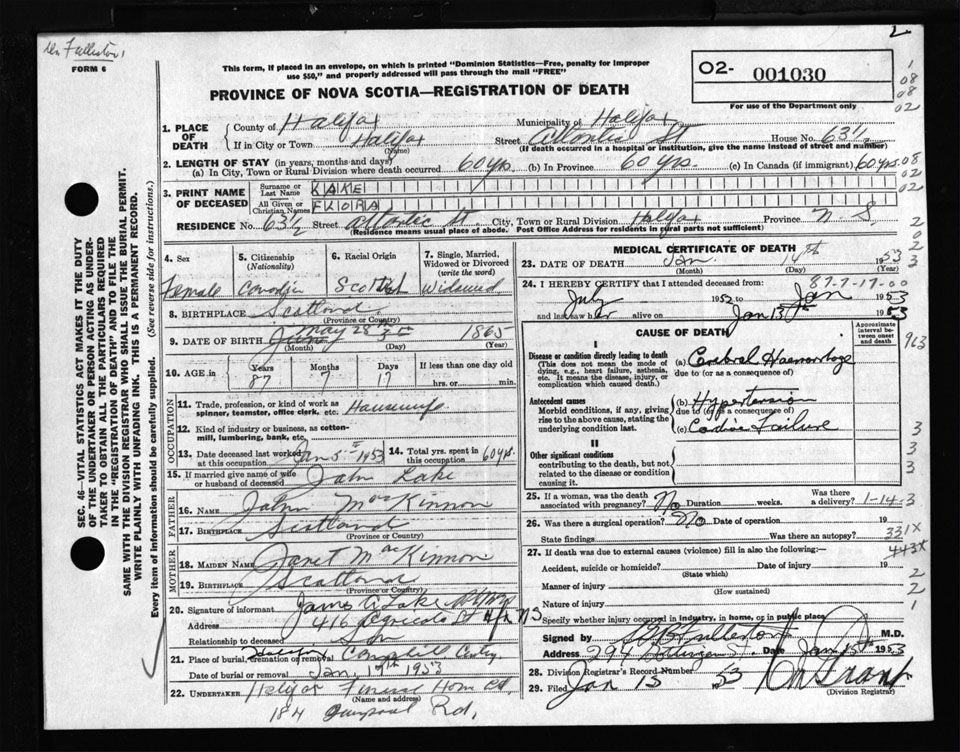 FORM 6
2
This form, if placed in an envelope, on which is printed "Dominion Statistics—Free, penalty for improper
use $50," and properly addressed will pass through the mail "FREE"
PROVINCE OF NOVA SCOTIA—REGISTRATION OF DEATH
02- 001030
For use of the Department only
1. PLACE OF DEATH
County of Halifax Municipality of Halifax
If in City or Town Halifax Street Atlantic St House No. 63½
(Name) (If death occurred in a hospital or institution, give the name instead of street and number)
2. LENGTH OF STAY (in years, months and days)
(a) In City, Town or Rural Division where death occurred 60 yrs. (b) In Province 60 yrs. (c) In Canada (if immigrant) 60 yrs.
3. PRINT NAME OF DECEASED
Surname or Last Name LAKE
All Given or Christian Names FLORA
RESIDENCE No. 63½ Street Atlantic St. City, Town or Rural Division Halifax Province N. S.
(Residence means usual place of abode. Post Office Address for residents in rural parts not sufficient)
4. Sex
Female
5. Citizenship
(Nationality)
Canadian
6. Racial Origin
Scottish
7. Single, Married,
Widowed or Divorced
(write the word)
Widowed
8. BIRTHPLACE Scotland
(Province or Country)
9. DATE OF BIRTH May 28 1865
(Month) (Day) (Year)
10. AGE in
Years Months Days If less than one day old
87 7 17 hrs. or min.
OCCUPATION
11. Trade, profession, or kind of work as
spinner, teamster, office clerk, etc. Housewife
12. Kind of industry or business, as cotton-
mill, lumbering, bank, etc.
13. Date deceased last worked
at this occupation Jan 5th 1953
14. Total yrs. spent in
this occupation 60 yrs.
15. If married give name of wife
or husband of deceased John Lake
FATHER
16. NAME John MacKinnon
17. BIRTHPLACE Scotland
(Province or Country)
MOTHER
18. MAIDEN NAME Janet MacKinnon
19. BIRTHPLACE Scotland
(Province or Country)
20. Signature of informant James A Lake
Address 416 Agricola St Hfx NS
Relationship to deceased Son
21. Place of burial, cremation or removal
Date of burial or removal Jan. 1953
22. UNDERTAKER Halifax Funeral Home
(Name and address)
184 Rd.
SEC. 46—VITAL STATISTICS ACT MAKES IT THE DUTY
OF THE UNDERTAKER OR PERSON ACTING AS UNDER-
TAKER TO OBTAIN ALL THE PARTICULARS REQUIRED
IN THE "REGISTRATION OF DEATH" AND TO FILE THE
SAME WITH THE DIVISION REGISTRAR WHO SHALL ISSUE THE BURIAL PERMIT.
WRITE PLAINLY WITH UNFADING INK. THIS IS A PERMANENT RECORD.
Every item of information should be carefully supplied. (See reverse side for instructions.)
MEDICAL CERTIFICATE OF DEATH
23. DATE OF DEATH Jan 14th 1953
(Month) (Day) (Year)
24. I HEREBY CERTIFY that I attended deceased from: 87-7-17-00
July 1952 to Jan 1953
and last saw her alive on Jan 13th 1953
CAUSE OF DEATH
Approximate interval between onset and death
I
Disease or condition directly leading to death
(This does not mean the mode of
dying, e.g., heart failure, asthenia,
etc. It means the disease, injury, or
complication which caused death.)
(a) Cerebral Haemorrhage
due to (or as a consequence of)
Antecedent causes
Morbid conditions, if any, giving
rise to the above cause, stating the
underlying condition last.
(b) Hypertension
due to (or as a consequence of)
(c) Cardiac Failure
II
Other significant conditions
contributing to the death, but not
related to the disease or condition
causing it.
25. If a woman, was the death
associated with pregnancy? No Duration weeks. Was there
a delivery? 1-14-3
26. Was there a surgical operation? No Date of operation 19
State findings Was there an autopsy? 331X
27. If death was due to external causes (violence) fill in also the following:— 443X
Accident, suicide or homicide? Date of injury 19
(State which)
Manner of injury
(How sustained)
Nature of injury
Specify whether injury occurred in industry, in home, or in public place
Signed by Fullerton M.D.
Address 294 Gottingen St. Date Jan 15th 1953
28. Division Registrar's Record Number
29. Filed Jan 15 1953
(Division Registrar)